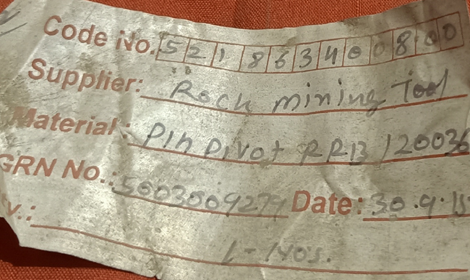 Code No. 521863400800
Supplier: Rock mining Tool
Material: Pin Pivot RRB 120036
GRN No.: 5003009279 Date: 30.9.15
1-Nos.